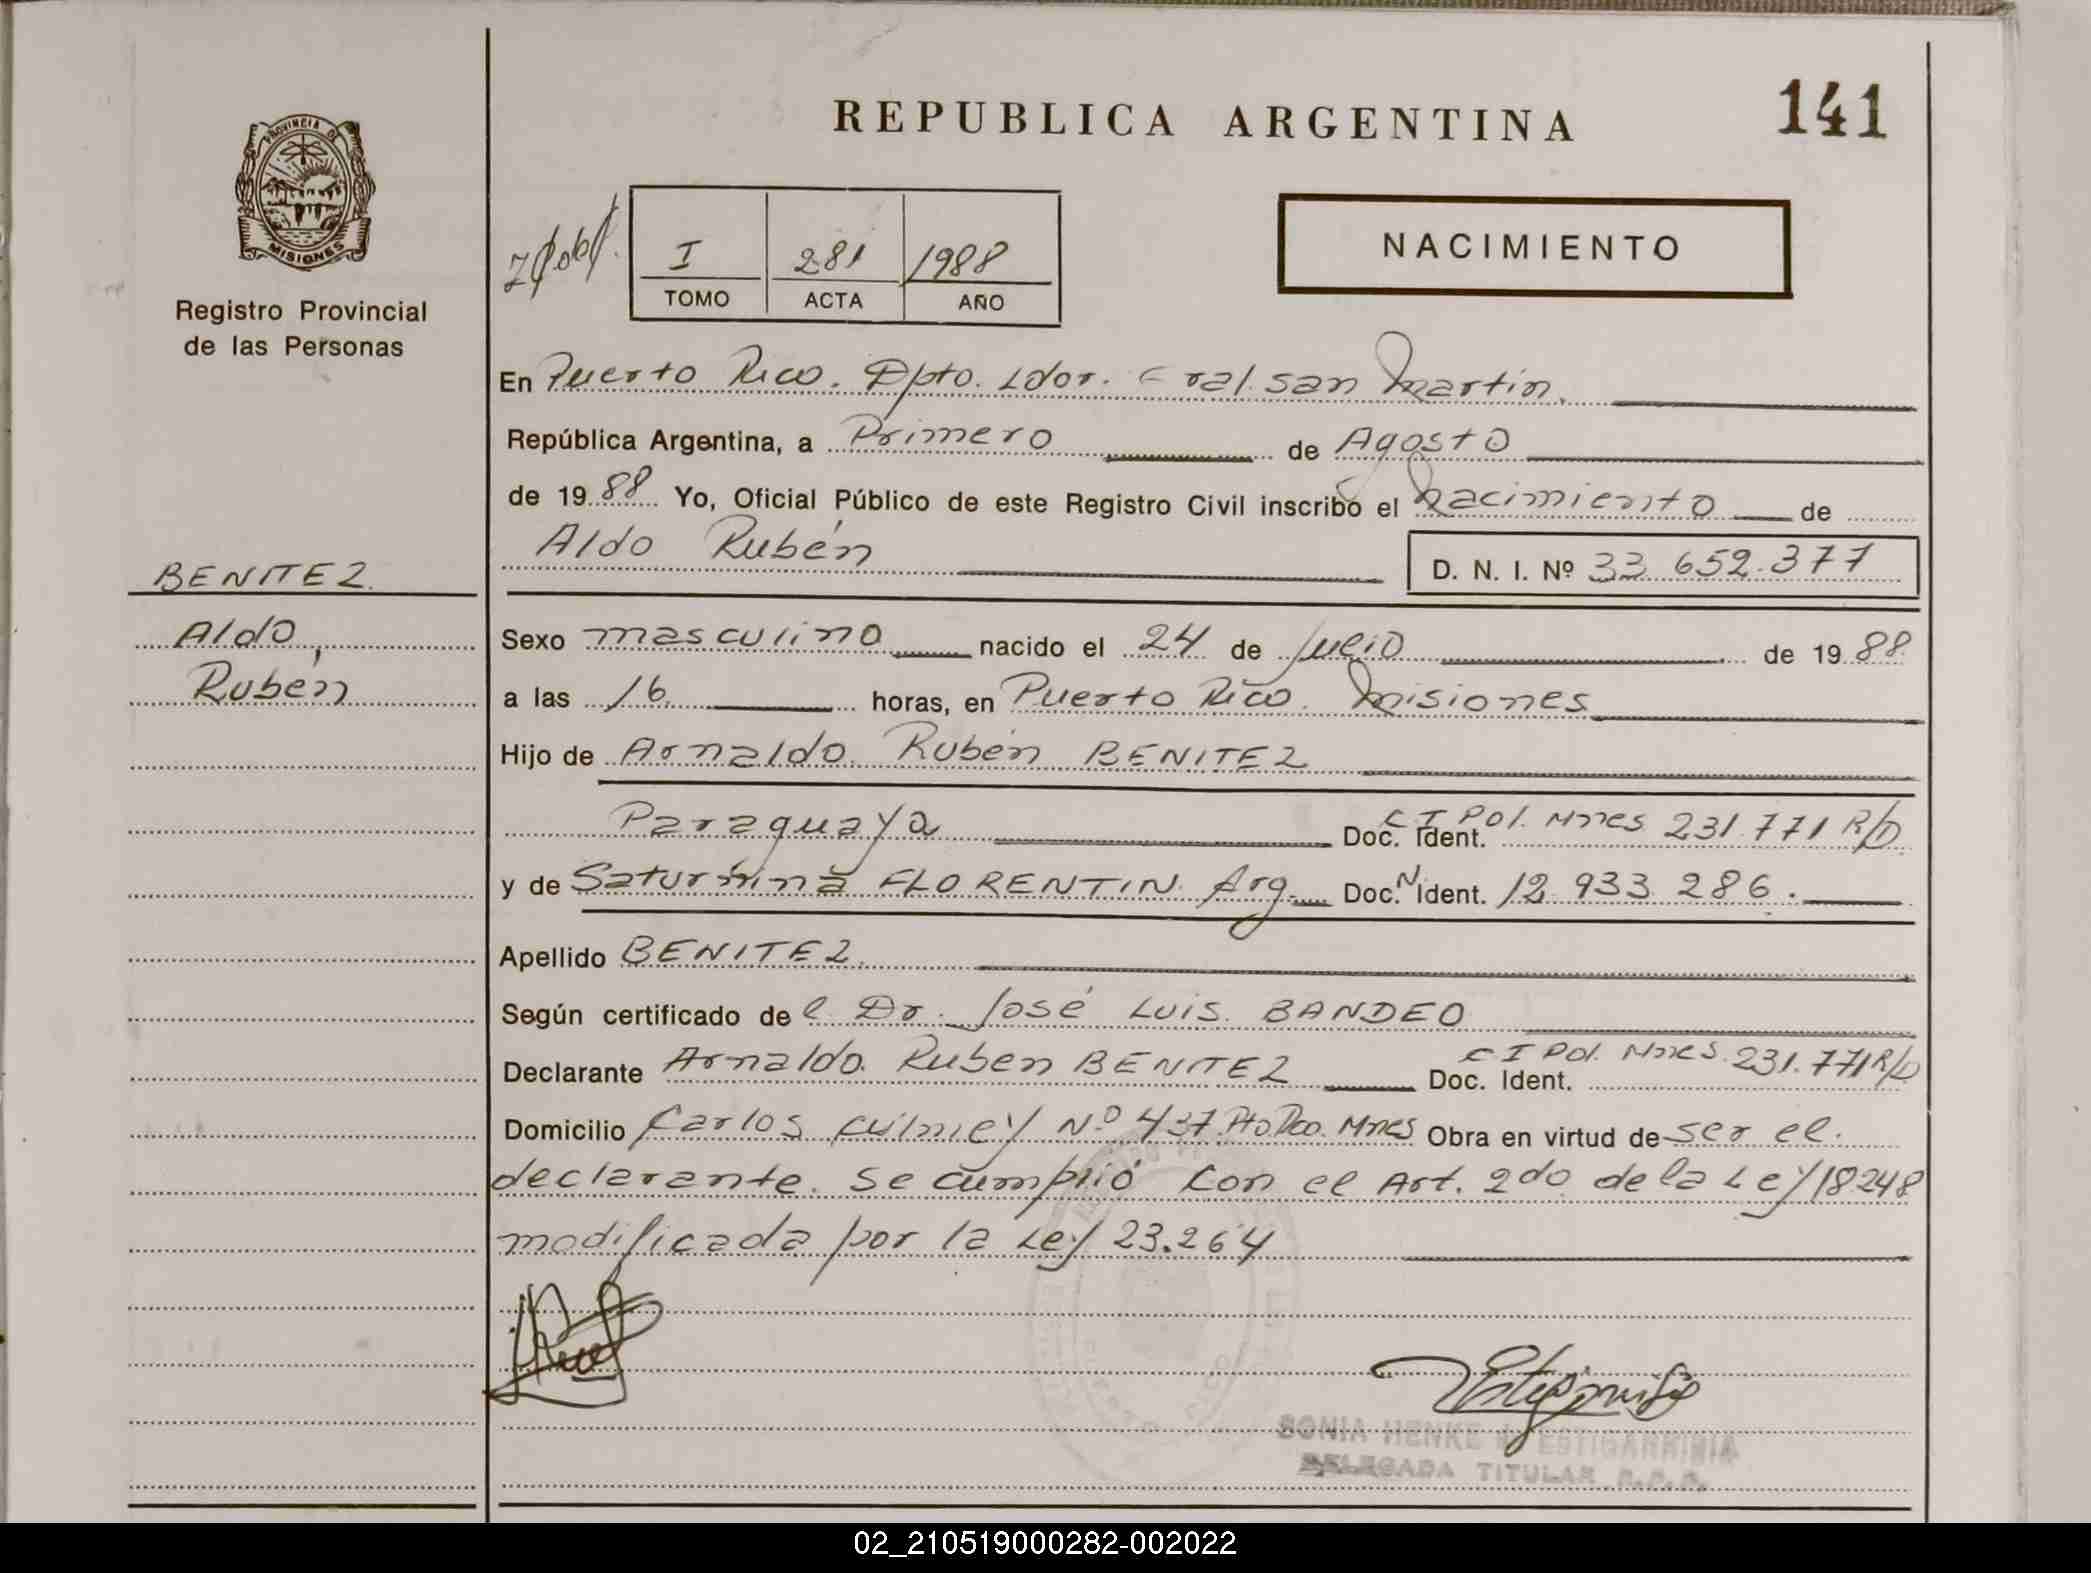 REPUBLICA ARGENTINA
141
PROVINCIA DE
MISIONES
Registro Provincial
de las Personas
I 281 1988
TOMO ACTA AÑO
NACIMIENTO
En Puerto Rico. Dpto. Ldor. Gral. san Martín.
República Argentina, a Primero de Agosto
de 1988 Yo, Oficial Público de este Registro Civil inscribo el Nacimiento de
Aldo Rubén
D. N. I. Nº 33.652.377
BENITEZ
Aldo
Rubén
Sexo masculino nacido el 24 de Julio de 1988
a las 16 horas, en Puerto Rico. Misiones
Hijo de Arnaldo Rubén BENITEZ
Paraguaya Doc. Ident. C I Pol. Mnes 231.771 R/D
y de Saturnina FLORENTIN. Arg. Doc. N. Ident. 12.933.286.
Apellido BENITEZ
Según certificado del Dr. José Luis BANDEO
Declarante Arnaldo Ruben BENITEZ Doc. Ident. C I Pol. Mnes. 231.771 R/D
Domicilio Carlos Culmey Nº 437. Pto Rco. Mnes Obra en virtud de ser el
declarante. Se cumplió con el Art. 2do de la Ley 18248
modificada por la Ley 23.264
SONIA HENKE
DELEGADA TITULAR R.P.P.
02_210519000282-002022